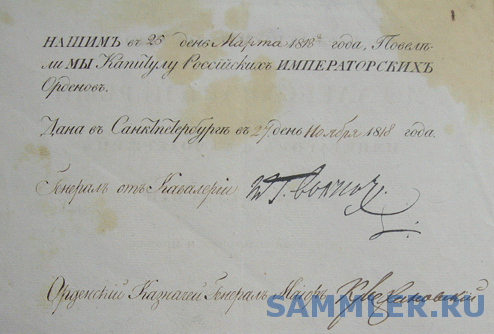 НАШИМЪ въ 25 день Марта 1818го года, Повелѣ-
ли МЫ Капитулу Россійскихъ ИМПЕРАТОРСКИХЪ
Орденовъ.
Дана въ Санктпетербургѣ въ 27 день Ноября 1818 года.
Генералъ отъ Кавалеріи
Орденскій Казначей Генералъ Маіоръ
SAMMLER.RU